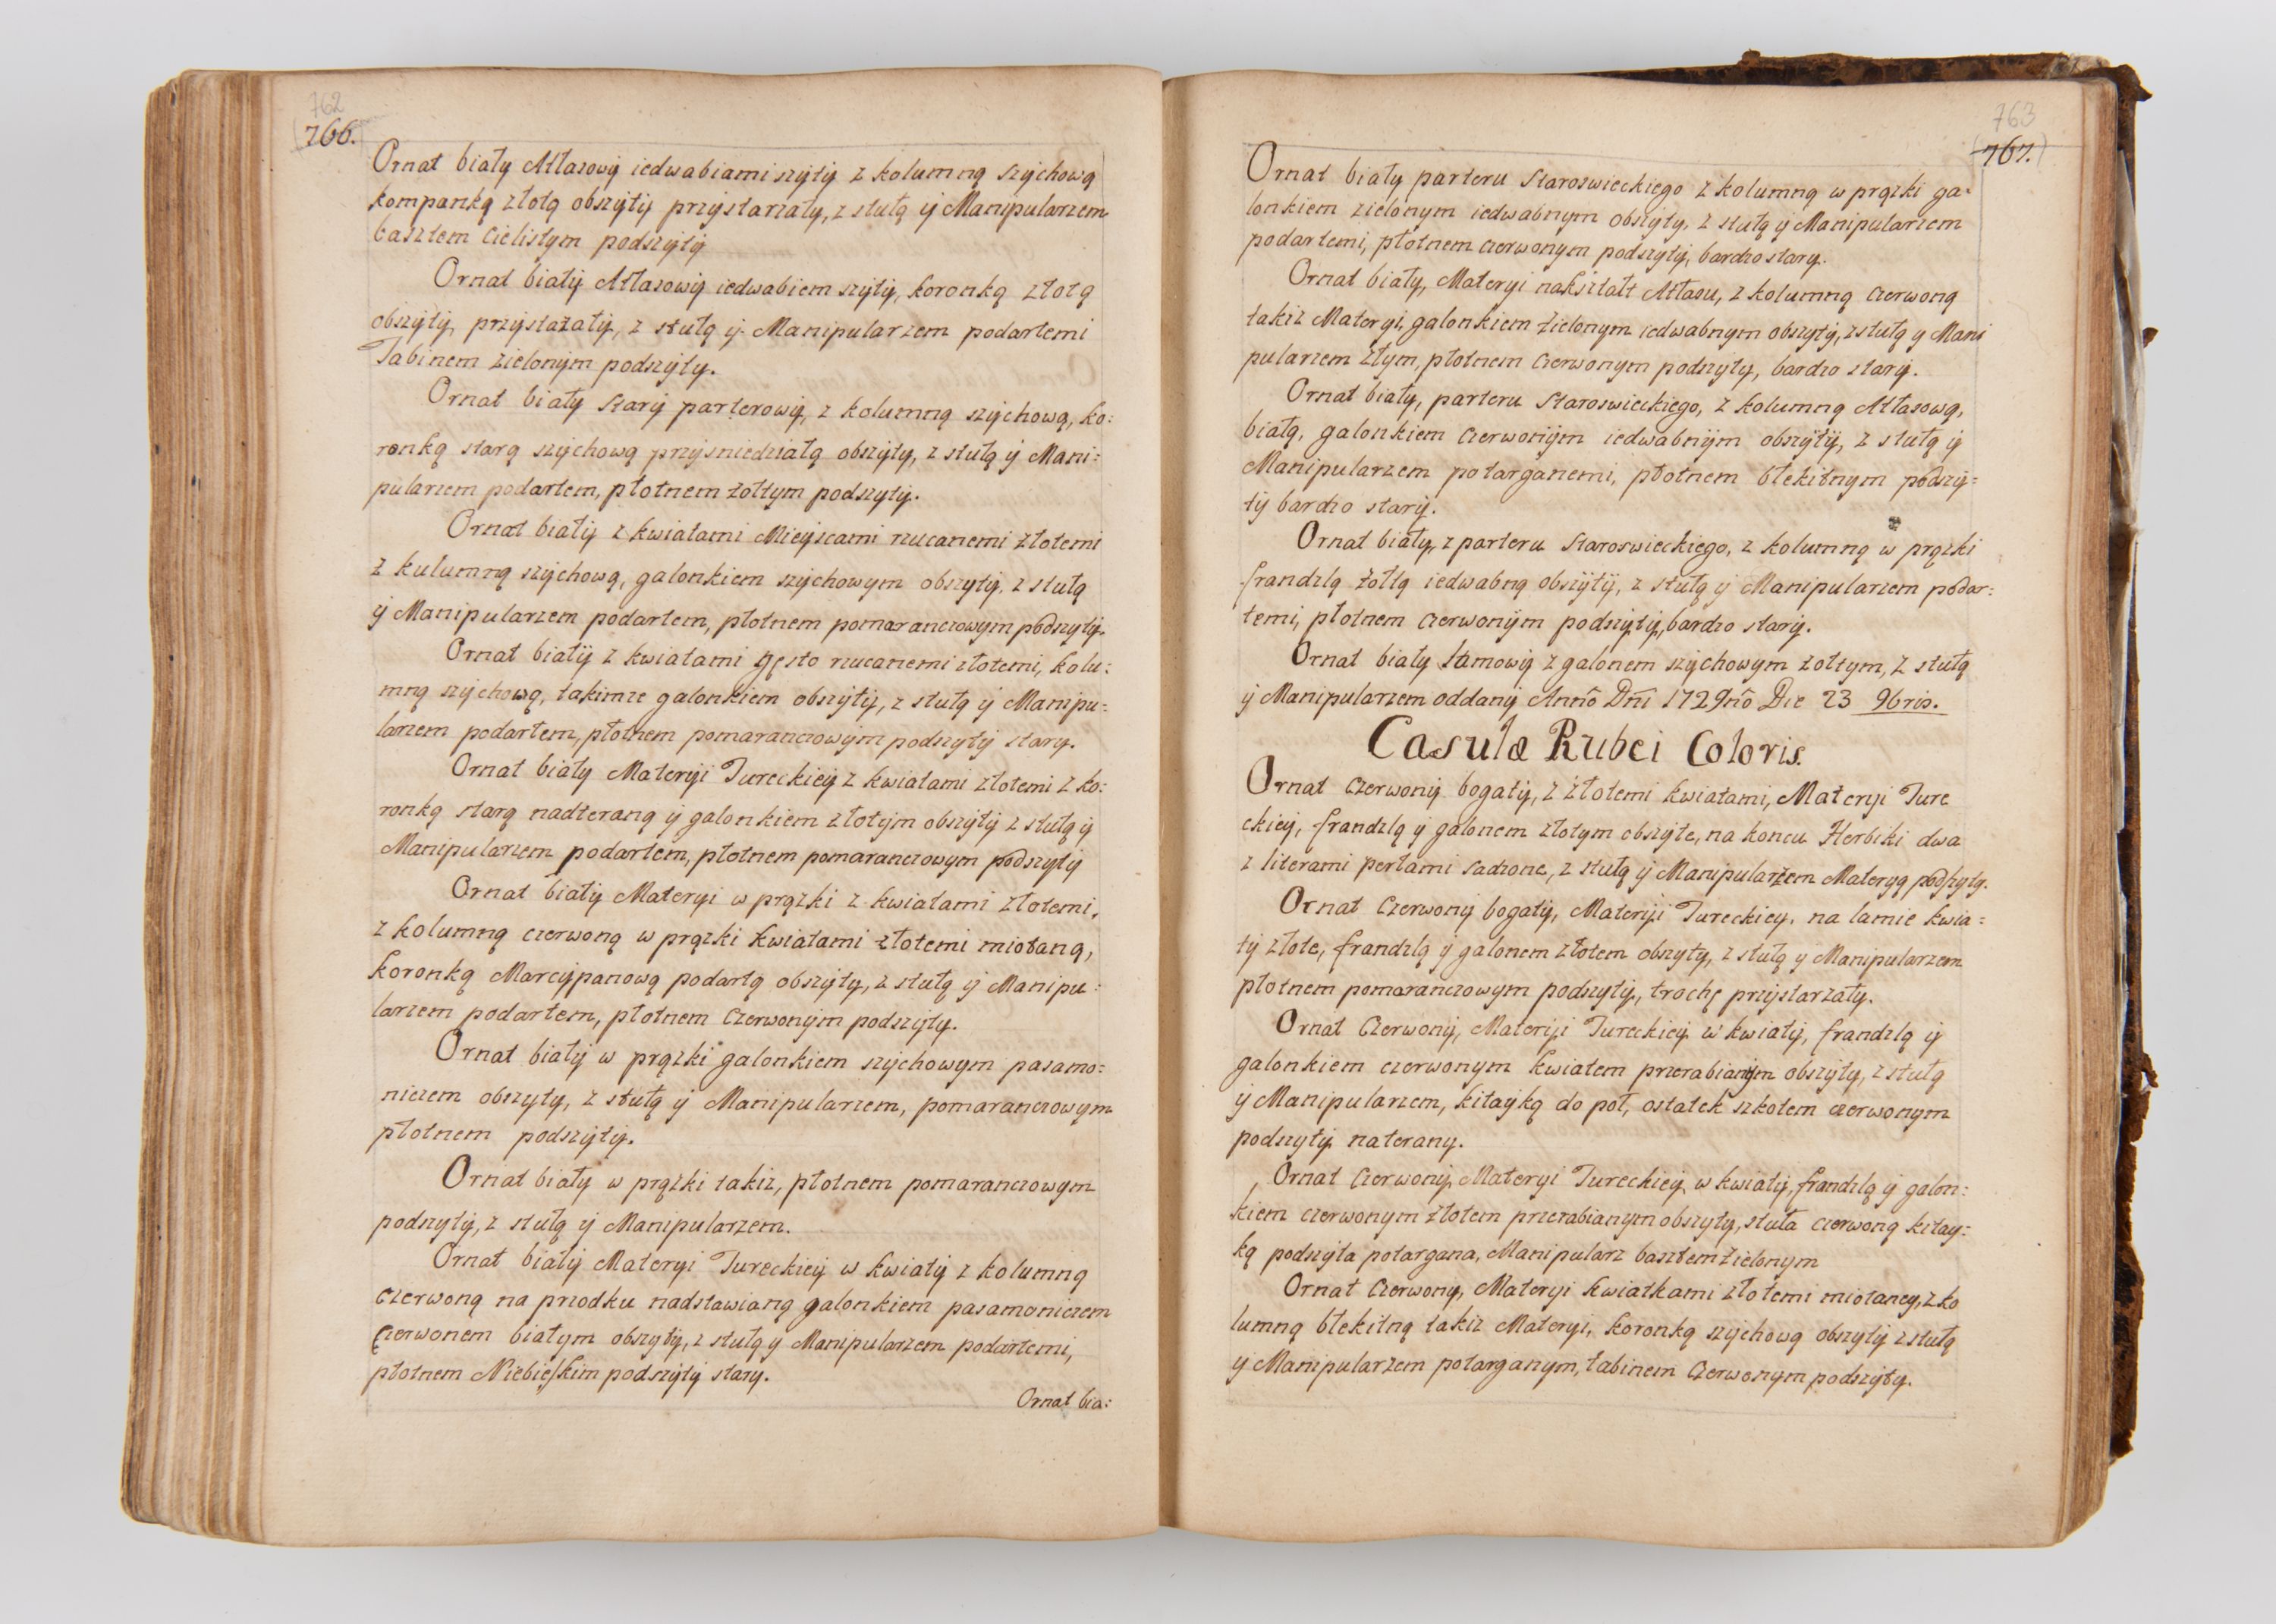 762
766.
Ornat biały Atłasowy iedwabiami szyty z kolumną szychową
kompanką złotą obszyty przystarzały, z stułą y Manipularzem
basztem Cielistym podszyty
Ornat biały Atłasowy iedwabiem szyty, koronką złotą
obszyty, przystażały, z stułą y Manipularzem podartemi
Tabinem zielonym podszyty.
Ornat biały stary parterowy, z kolumną szychową, ko:
ronką starą szychową przysniedziałą obszyty, z stułą y Mani:
pularzem podartem, płotnem żołtym podszyty.
Ornat biały z kwiatami Mieyscami rzucanemi złotemi
z kulumną szychową, galonkiem szychowym obszyty, z stułą
y Manipularzem podartem, płotnem pomaranczowym podszyty.
Ornat biały z kwiatami gęsto rzucanemi złotemi, kolu:
mną szychową, takimze galonkiem obszyty, z stułą y Manipu:
larzem podartem, płotnem pomaranczowym podszyty stary.
Ornat biały Materyi Tureckiey z kwiatami złotemi z ko:
ronką starą nadteraną y galonkiem złotym obszyty z stułą y
Manipularzem podartem, płotnem pomaranczowym podszyty
Ornat biały Materyi w prązki z kwiatami złotemi,
z kolumną czerwoną w prązki kwiatami złotemi miotaną,
koronką Marcypanową podartą obszyty, z stułą y Manipu:
larzem podartem, płotnem Czerwonym podszyty.
Ornat biały w prązki galonkiem szychowym pasamo:
niczem obszyty, z stułą y Manipularzem, pomaranczowym
płotnem podszyty.
Ornat biały w prązki takiz, płotnem pomaranczowym
podszyty, z stułą y Manipularzem.
Ornat biały Materyi Tureckiey w kwiaty z kolumną
czerwoną na przodku nadstawianą galonkiem pasamoniczem
Czerwonem białym obszyty, z stułą y Manipularzem podartemi,
płotnem Niebieskim podszyty stary.
Ornat bia:
763
767.
Ornat biały parteru Staroswieckiego z kolumną w prązki ga:
lonkiem zielonym iedwabnym obszyty, z stułą y Manipularzem
podartemi, płotnem czerwonym podszyty, bardzo stary.
Ornat biały, Materyi nakształt Atłasu, z kolumną Czerwoną
takiz Materyi, galonkiem zielonym iedwabnym obszyty, z stułą y Mani
pularzem złym, płotnem Czerwonym podszyty, bardzo stary.
Ornat biały, parteru Staroswieckiego, z kolumną Atłasową,
białą, galonkiem Czerwonym iedwabnym obszyty, z stułą y
Manipularzem potarganemi, płotnem błekitnym podszy=
ty bardzo stary.
Ornat biały, z parteru Staroswieckiego, z kolumną w prązki
frandzlą żołtą iedwabną obszyty, z stułą y Manipularzem podar:
temi, płotnem Czerwonym podszyty, bardzo stary.
Ornat biały lamowy z galonem szychowym zołtym, z stułą
y Manipularzem oddany Anno Dni 1729no Die 23 9bris.
Casulæ Rubei Coloris.
Ornat Czerwony bogaty, z złotemi kwiatami, Materyi Ture
ckiey, frandzlą y galonem złotym obszyte, na koncu Herbiki dwa
z literami perłami sadzone, z stułą y Manipularzem Materyą podszyty.
Ornat Czerwony bogaty, Materyi Tureckiey, na lamie kwia=
ty złote, frandzlą y galonem złotem obszyty, z stułą y Manipularzem
płotnem pomaranczowym podszyty, trochę przystarzały.
Ornat Czerwony, Materyi Tureckiey w kwiaty, frandzlą y
galonkiem czerwonym kwiatem przerabianym obszyty, z stułą
y Manipularzem, kitayką do poł, ostatek szkotem czerwonym
podszyty naterany.
Ornat Czerwony Materyi Tureckiey w kwiaty, frandzlą y galon:
kiem czerwonym złotem przerabianym obszyty, stuła czerwoną kitay:
ką podszyta potargana, Manipularz basztem zielonym
Ornat Czerwony, Materyi kwiatkami złotemi miotaney, z ko
lumną błekitną takiz Materyi, koronką szychową obszyty z stułą
y Manipularzem potarganym, tabinem Czerwonym podszyty.